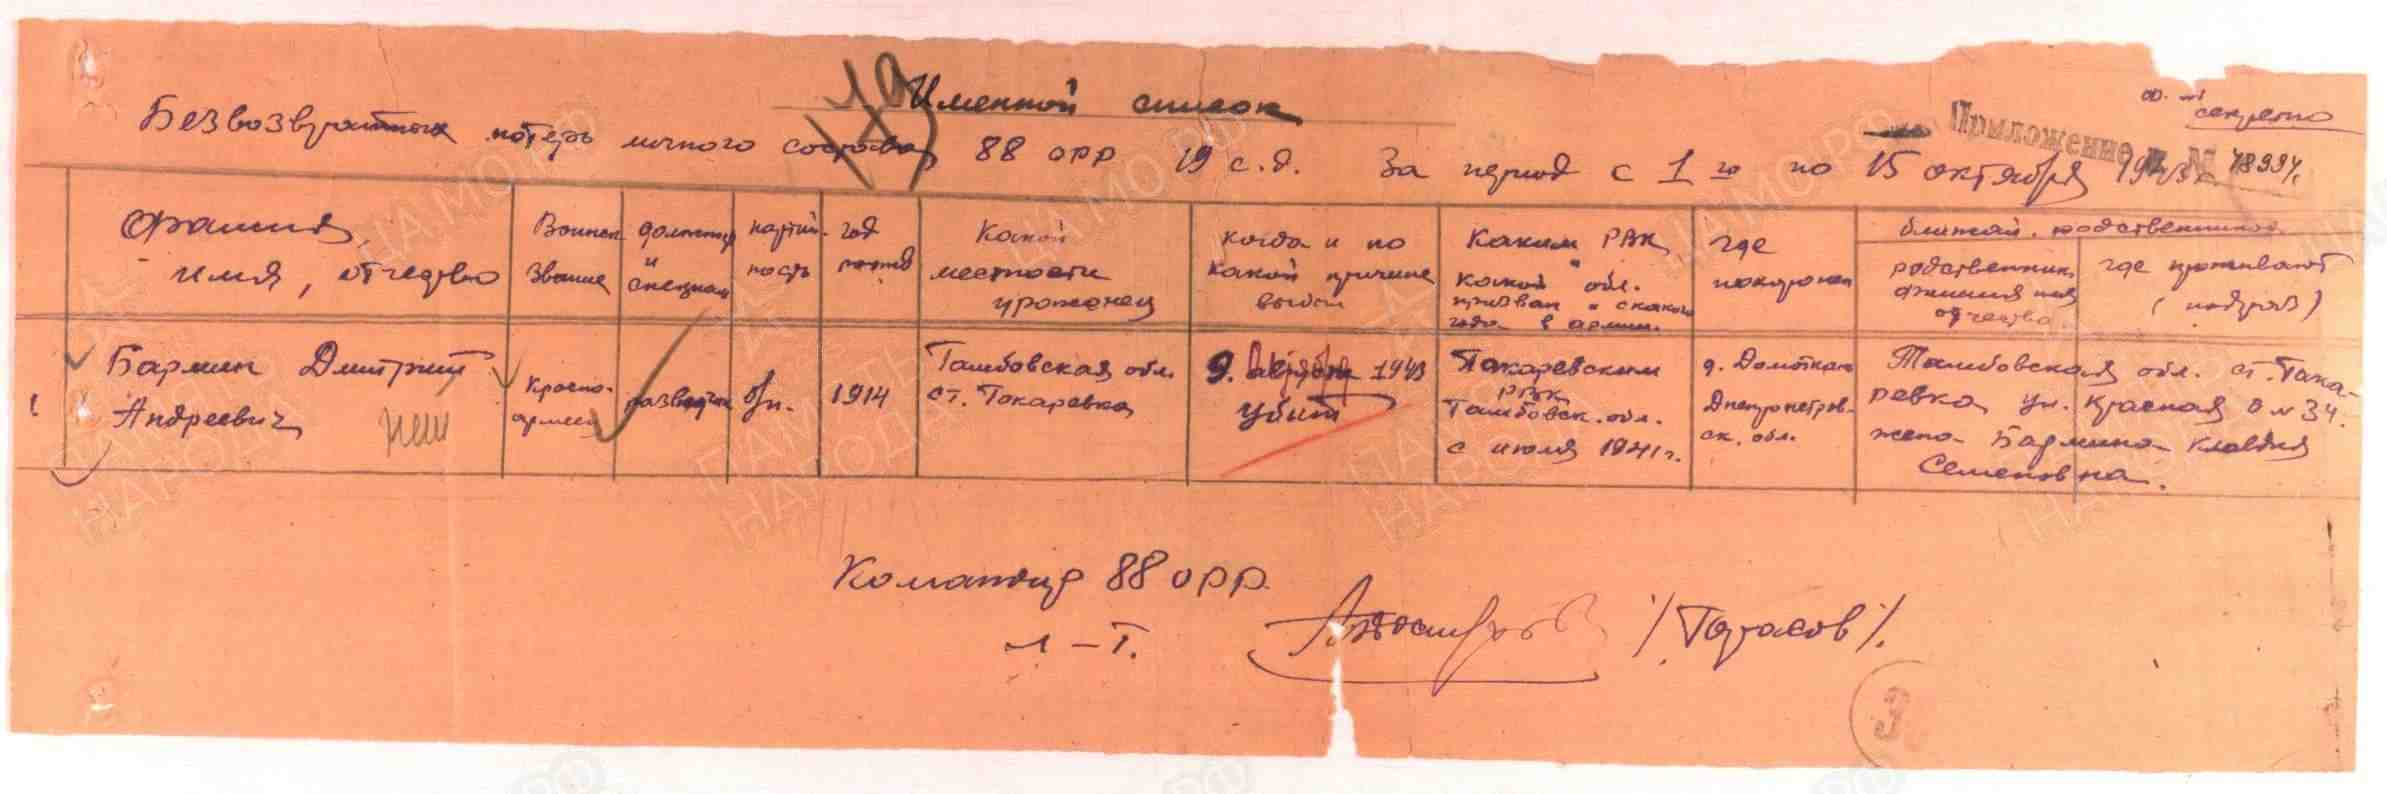 сов. секретно
Именной список
179
Приложение к № 48994.
Безвозвратных потерь личного состава 88 орр 19 с.д. За период с 1 го по 15 октября 1943 г.
Фамилия, имя, отчество
Воинск. звание
должность и специал.
партий-ность
год рожд.
Какой местности уроженец
когда и по какой причине выбыл
Каким РВК, какой обл. призван и с какого года в армии.
где похоронен
ближай. родственников
родственник фамилия имя отчество
где проживают (подроб)
1. Бармин Дмитрий
Андреевич
Красно-
армеец
разведчик
б/п.
1914
Тамбовская обл.
ст. Токаревка
9. Октября 1943
убит
Токаревским
РВК
Тамбовск. обл.
с июля 1941 г.
д. Домоткань
Днепропетров-
ск. обл.
Тамбовская обл. ст. Тока-
ревка ул. Красная д № 34.
жена - Бармина - Клавдия
Семеновна.
Командир 88 орр.
л-т. /Тарасов/.
3
ПАМЯТЬ
НАРОДА
ЦАМО.РФ